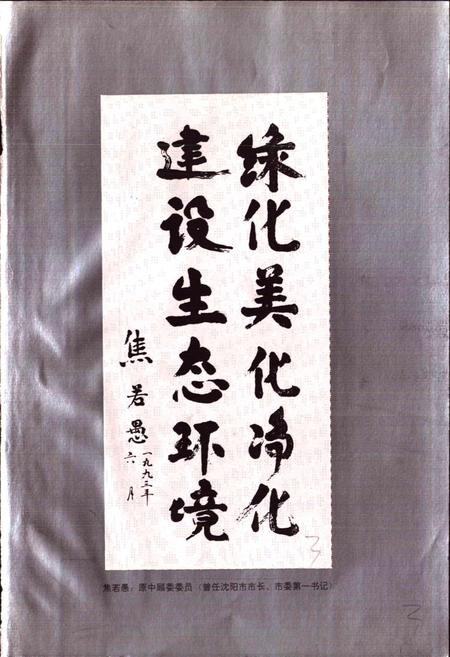 绿化美化净化
建设生态环境
焦若愚
一九九三年
六月
焦若愚：原中顾委委员（曾任沈阳市市长、市委第一书记）
3
3